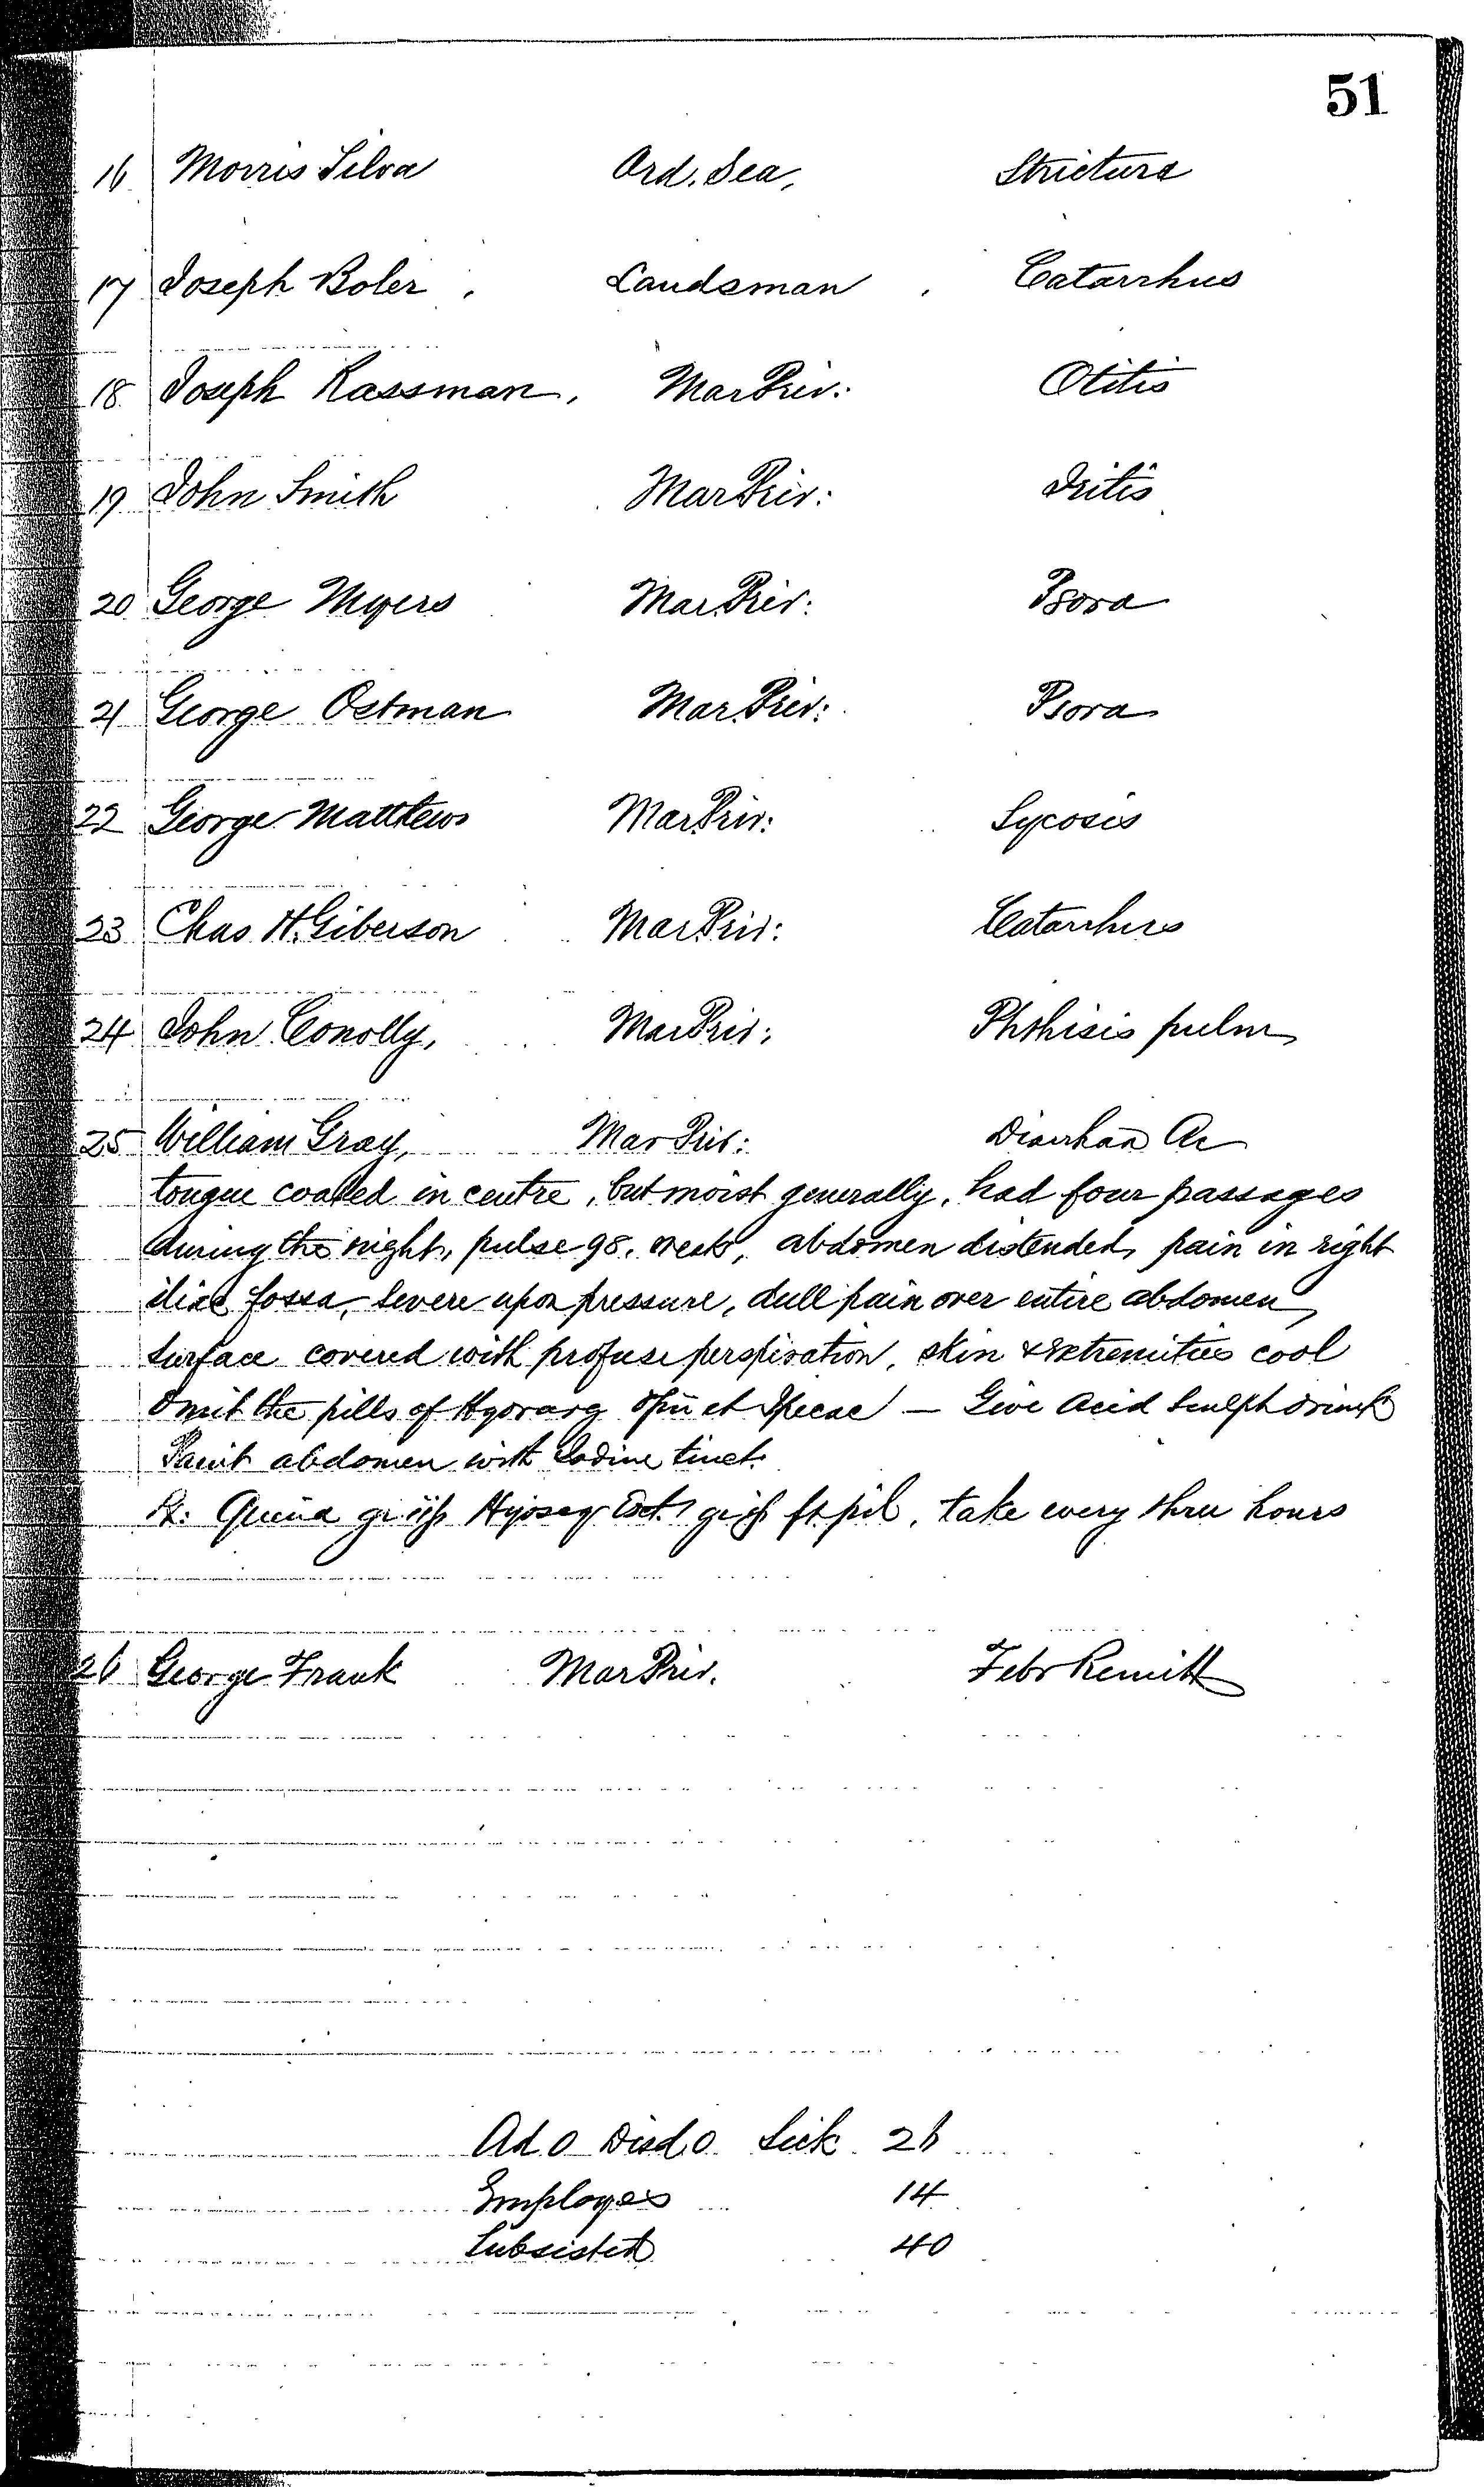 51
16 Morris Silva Ord. Sea, Stricture
17 Joseph Boler, Landsman, Catarrhus
18 Joseph Rassman, Mar Priv: Otitis
19 John Smith Mar Priv: Iritis
20 George Myers Mar. Priv: Psora
21 George Ostman Mar. Priv: Psora
22 George Matthews Mar Priv: Sycosis
23 Chas H. Giberson Mar Priv: Catarrhus
24 John Conolly, Mar Priv: Phthisis pulm
25 William Gray, Mar Priv: Diarrhœa Ac
tongue coated in centre, but moist generally, had four passages
during the night, pulse 98, weak, abdomen distended, pain in right
iliac fossa, severe upon pressure, dull pain over entire abdomen,
surface covered with profuse perspiration, skin & extremities cool
Omit the pills of Hydrarg Opii et Ipecac — Give Acid Sulph drink
Paint abdomen with Iodine tinct.
Rx: Quina gr iiſs Hyoscy Ext. gr iſs ft pil, take every three hours
26 George Frank Mar Priv. Febr Remitt
Ad 0 Disd 0 Sick 26
Employes 14
Subsisted 40